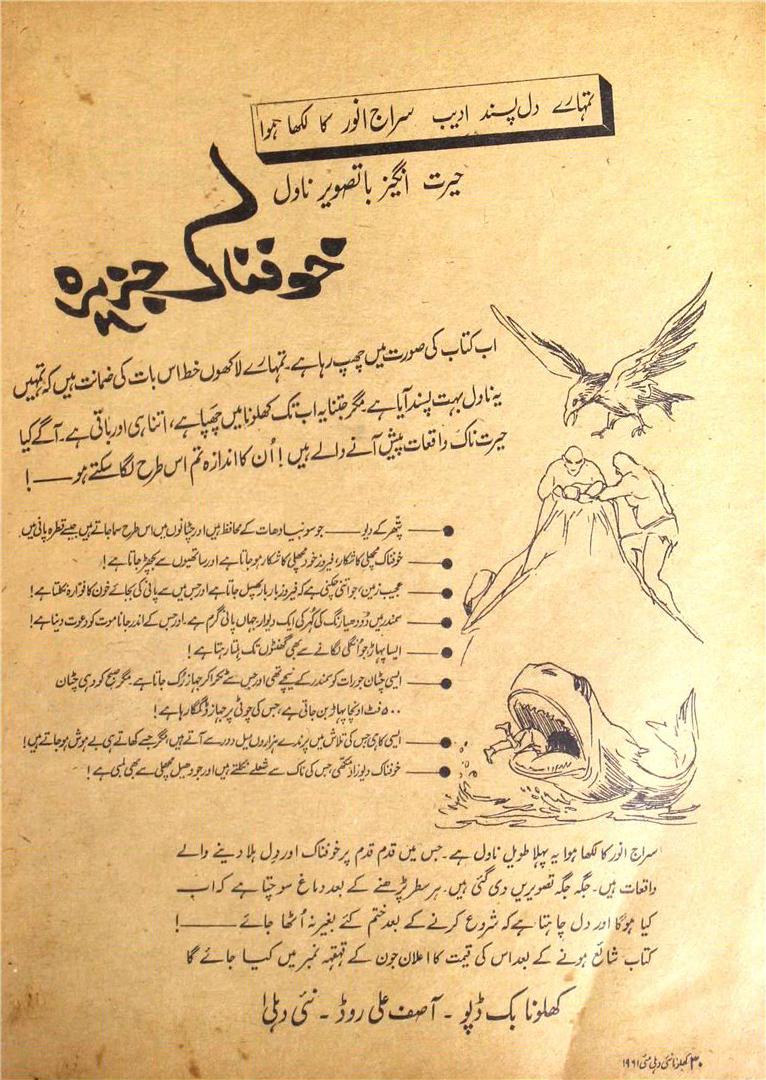 تمہارے دل پسند ادیب سراج انور کا لکھا ہوا
حیرت انگیز باتصویر ناول
خوفناک جزیرہ
اب کتاب کی صورت میں چھپ رہا ہے۔ تمہارے لاکھوں خط اس بات کی ضمانت ہیں کہ تمہیں
یہ ناول بہت پسند آیا ہے۔ مگر جتنا یہ اب تک کھلونا میں چھپا ہے، اتنا ہی اور باقی ہے۔ آگے کیا
حیرت ناک واقعات پیش آنے والے ہیں! اُن کا اندازہ تم اس طرح لگا سکتے ہو ——!
● —— پتھر کے دیو —— جو سونیا دھات کے محافظ ہیں اور چٹانوں میں اس طرح سما جاتے ہیں جیسے قطرہ پانی میں
● —— خوفناک مچھلی کا شکار، فیروز خود مچھلی کا شکار ہو جاتا ہے اور ساتھیوں سے بچھڑ جاتا ہے!
● —— عجیب زمین، جو اتنی چکنی ہے کہ فیروز بار بار پھسل جاتا ہے اور جس میں سے پانی کی بجائے خون کا فوارہ نکلتا ہے!
● —— سمندر میں دُودھیا رنگ کی کُہر کی ایک دیوار جہاں پانی گرم ہے۔ اور جس کے اندر جانا موت کو دعوت دینا ہے!
● —— ایسا پہاڑ جو اُنگلی لگانے سے بھی گھنٹوں تک ہلتا رہتا ہے!
● —— ایسی چٹان جو رات کو سمندر کے نیچے تھی اور جس سے ٹکرا کر جہاز رُک جاتا ہے۔ مگر صبح کو وہی چٹان
۵۰۰ فٹ اونچا پہاڑ بن جاتی ہے، جس کی چوٹی پر جہاز ڈگمگا رہا ہے!
● —— ایسی کاہی جس کی تلاش میں پرندے ہزاروں میل دور سے آتے ہیں، مگر جسے کھاتے ہی بے ہوش ہو جاتے ہیں!
● —— خوفناک دیوزاد مکھی جس کی ناک سے شعلے نکلتے ہیں اور جو دھیل مچھلی سے بھی لمبی ہے!
سراج انور کا لکھا ہوا یہ پہلا طویل ناول ہے۔ جس میں قدم قدم پر خوفناک اور دِل ہلا دینے والے
واقعات ہیں۔ جگہ جگہ تصویریں دی گئی ہیں۔ ہر سطر پڑھنے کے بعد دماغ سوچتا ہے کہ اب
کیا ہوگا اور دل چاہتا ہے کہ شروع کرنے کے بعد ختم کئے بغیر نہ اُٹھا جائے ——!
کتاب شائع ہونے کے بعد اس کی قیمت کا اعلان جون کے قہقہہ نمبر میں کیا جائے گا
کھلونا بک ڈپو ۔ آصف علی روڈ ۔ نئی دہلی ۱
۳۰ کھلونا نئی دہلی مئی ۱۹۶۱